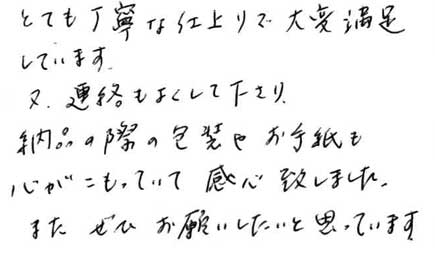 とても丁寧な仕上りで大変満足
しています。
又、連絡もよくして下さり、
納品の際の包装やお手紙も
心がこもっていて感心致しました。
また ぜひ お願いしたいと思っています